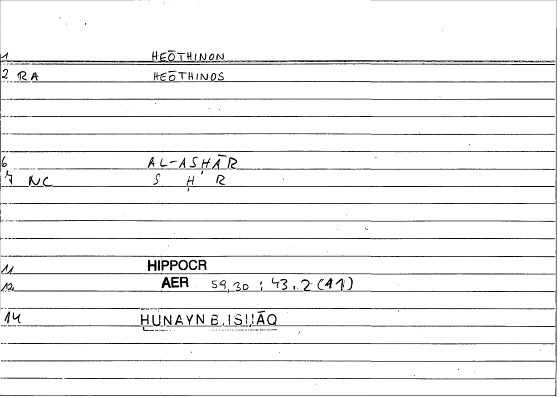 1 HEŌTHINON
2 RA HEŌTHINOS
6 AL-ASḤĀR
7 NC S Ḥ R
11 HIPPOCR
12 AER 59,30 ; 43,2 (11)
14 ḤUNAYN B. ISḤĀQ